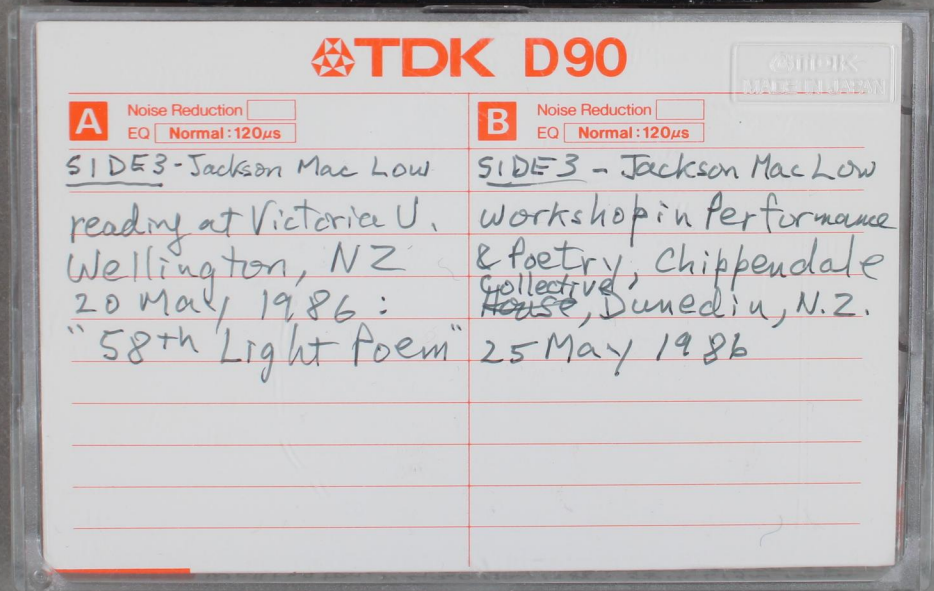 TDK D90
TDK
MADE IN JAPAN
A Noise Reduction
EQ Normal:120μs
SIDE3-Jackson Mac Low
reading at Victoria U.
Wellington, NZ
20 May 1986:
"58th Light Poem"
B Noise Reduction
EQ Normal:120μs
SIDE3 - Jackson Mac Low
workshop in Performance
& Poetry, Chippendale
Collective
House, Dunedin, N.Z.
25 May 1986